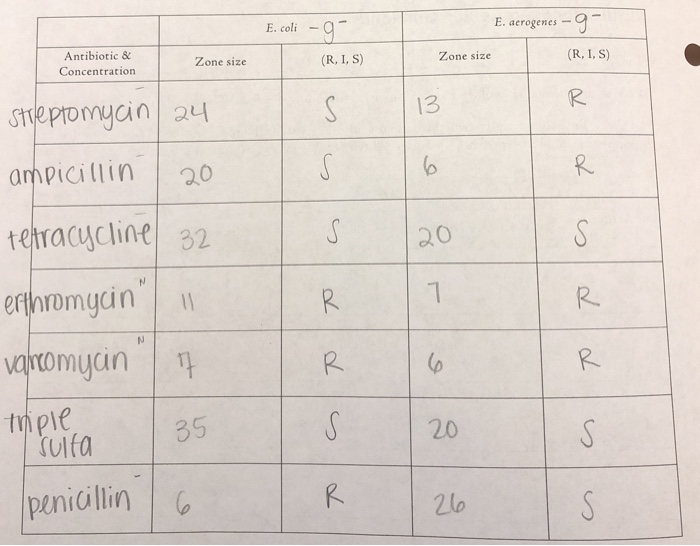 E. coli - g-
E. aerogenes - g-
Antibiotic &
Concentration
Zone size
(R, I, S)
Zone size
(R, I, S)
streptomycin - 24 S 13 R
ampicillin - 20 S 6 R
tetracycline - 32 S 20 S
erthromycin N 11 R 7 R
vancomycin N 7 R 6 R
triple
sulfa 35 S 20 S
penicillin - 6 R 26 S